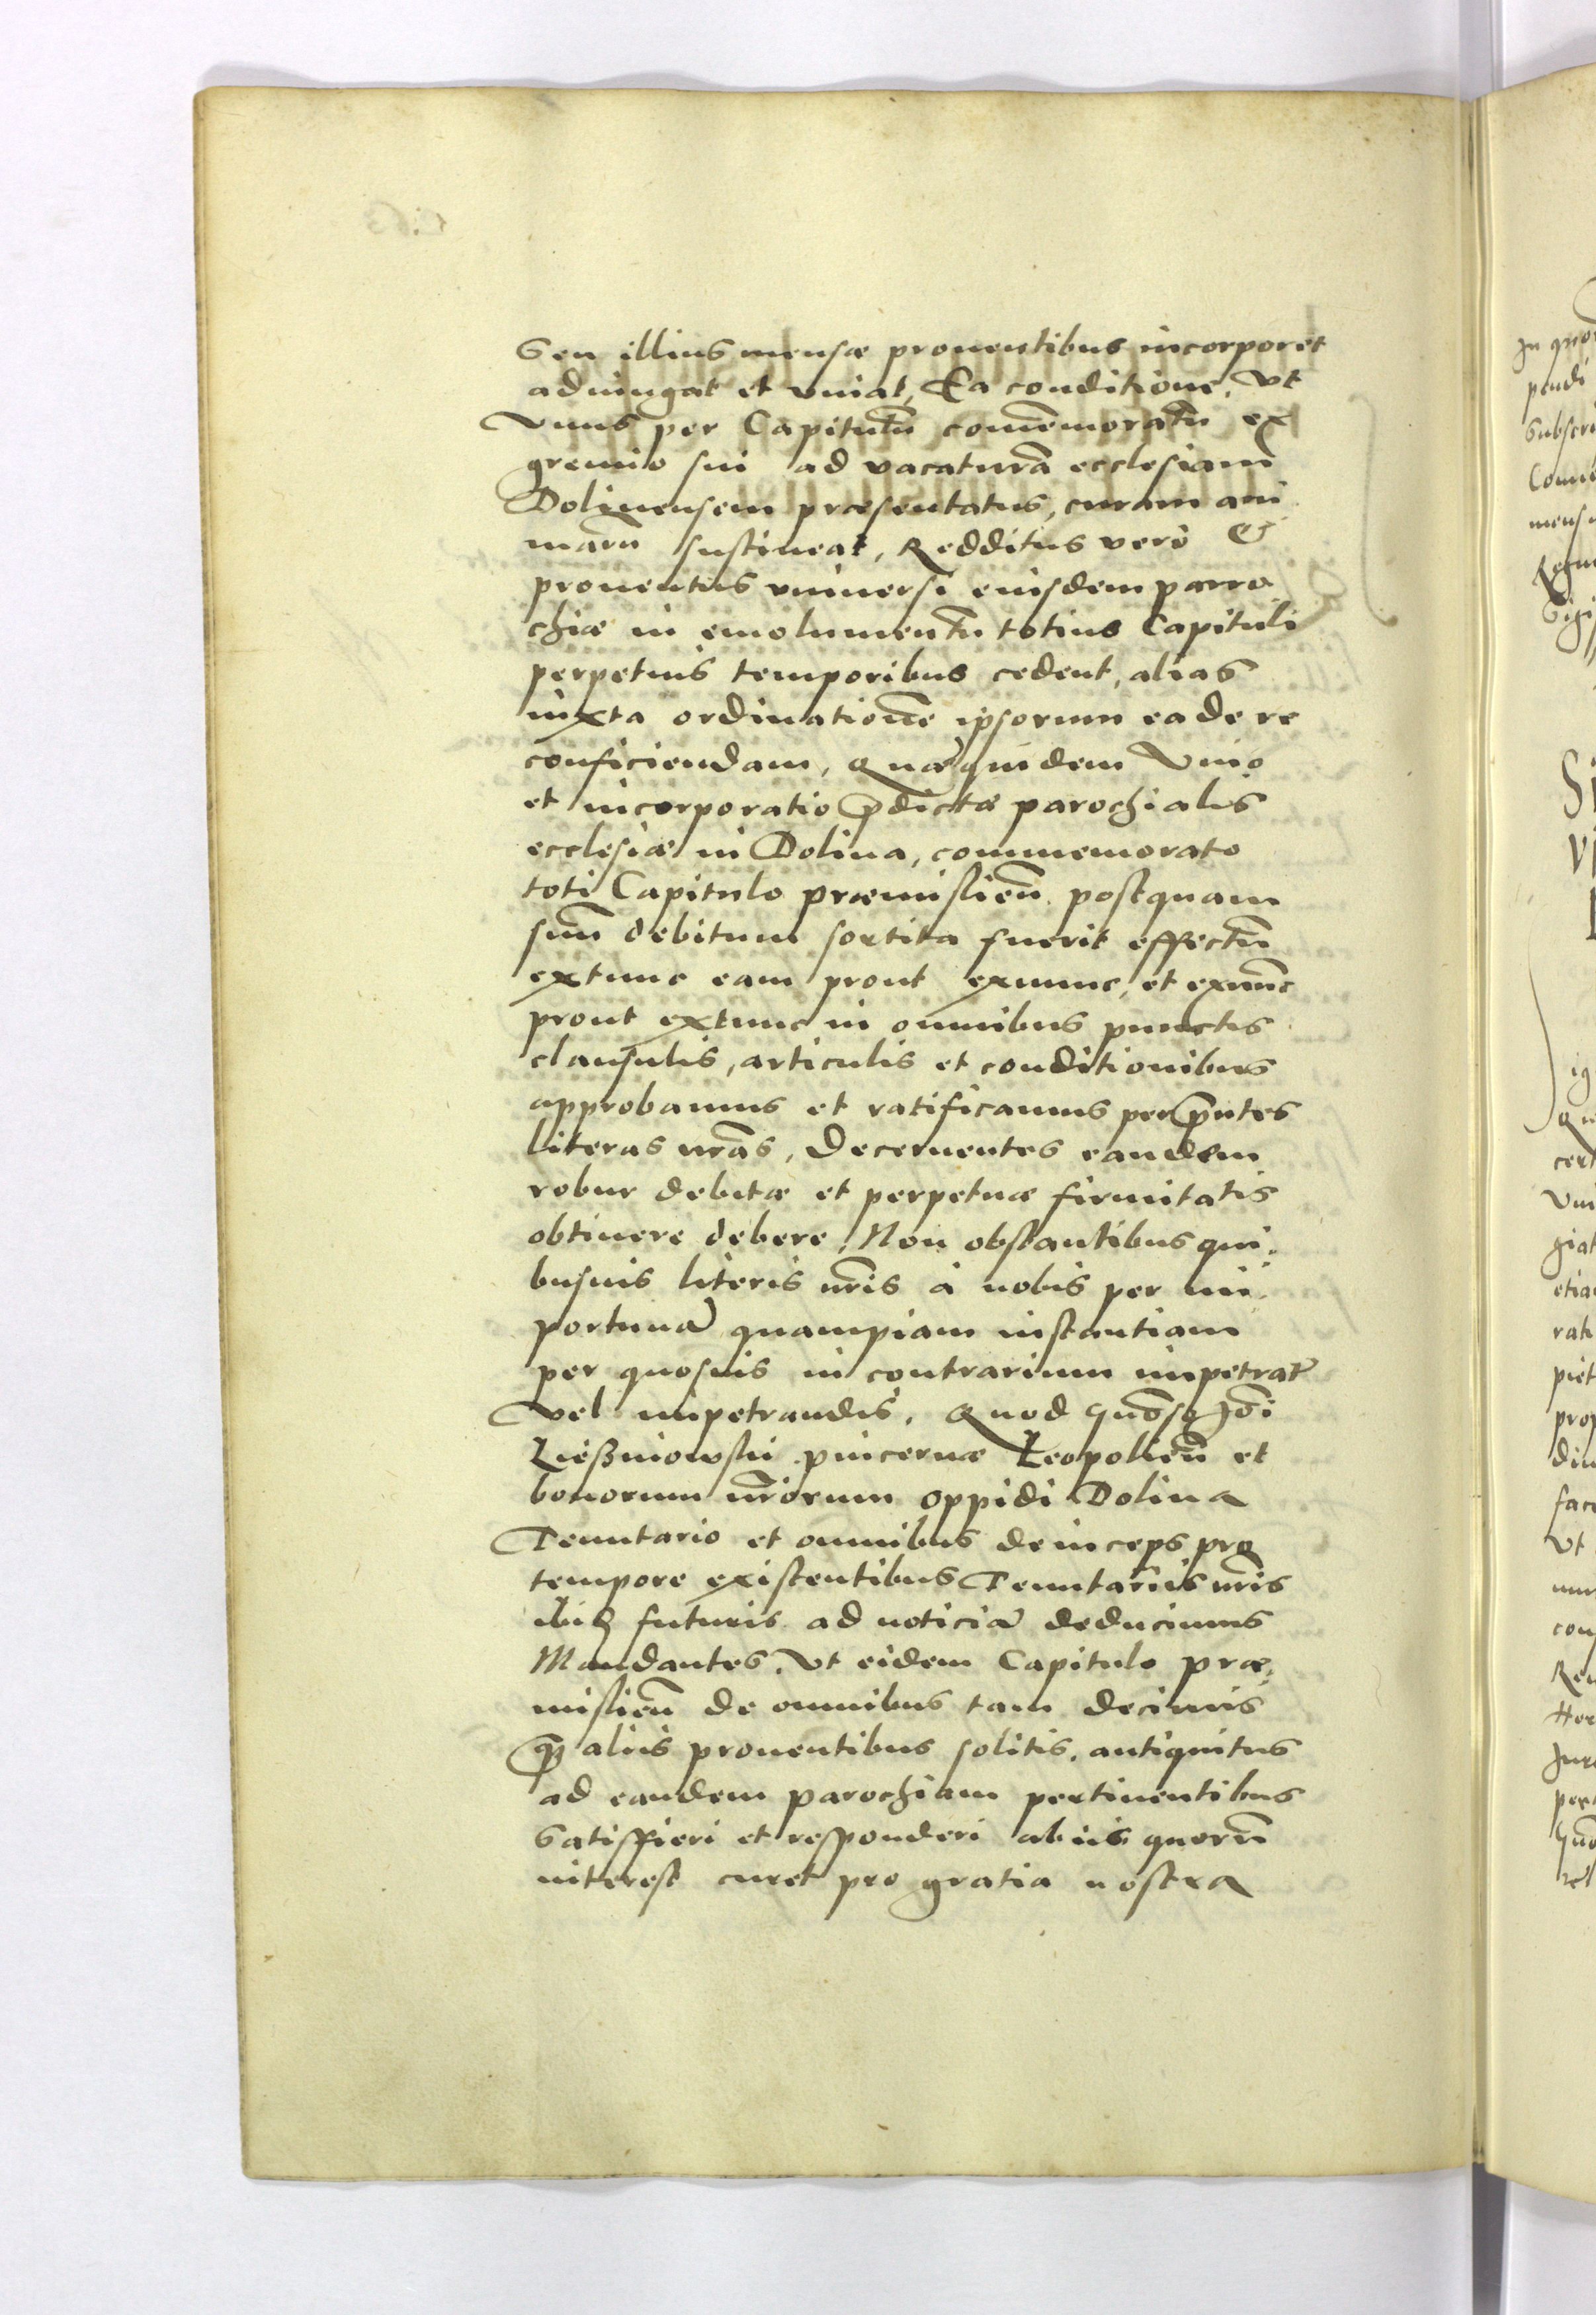 Seu illius mensæ prouentibus incorporet
adiungat et vniat, Ea conditione, Vt
Vnus per Capitulū com̄emoratū ex
gremio sui ad vacaturā ecclesiam
Dolinensem præsentatus, curam ani
marū sustineat, Redditus verò &
prouentus vniuersi eiusdem parro
chiæ in emolumentū totius Capituli
perpetuis temporibus cedent, alias
iuxta ordinationē ipsorum ea de re
conficiendam, Quæquidem Vnio
et incorporatio p̄dictæ parochialis
ecclesiæ in Dolina, commemorato
toti Capitulo præmislieñ. postquam
suū debitum sortita fuerit effectū
extunc eam prout exnunc, et exnunc
prout extunc in omnibus punctis
clausulis, articulis et conditionibus
approbamus et ratificamus per p̄ntes
literas nr̄as, Decernentes eandem
robur debitæ et perpetuæ firmitatis
obtinere debere, Non obstantibus qui,
busuis literis nr̄is à nobis per im,
portunā quampiam instantiam
per quosuis in contrarium impetrat̃
Vel impetrandis, Quod gnōso Jōi
Lieszniowski pincernæ Leopolieñ et
bonorum nr̄orum oppidi Dolina
Tenutario et omnibus deinceps pro
tempore existentibus Tenutariis nr̄is
ibiq̃ futuris ad noticiā deducimus
Mandantes, Vt eidem Capitulo præ,
mislieñ de omnibus tam decimis
q̃ aliis prouentibus solitis, antiquitus
ad eandem parochiam pertinentibus
Satisfieri et responderi ab iis quorū
interest curet pro gratia nostra